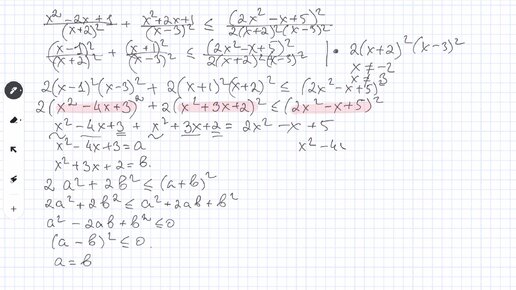 (x²-2x+1)/(x+2)² + (x²+2x+1)/(x-3)² ≤ (2x²-x+5)²/(2(x+2)²(x-3)²)
(x-1)²/(x+2)² + (x+1)²/(x-3)² ≤ (2x²-x+5)²/(2(x+2)²(x-3)²) | • 2(x+2)²(x-3)²
x ≠ -2
x ≠ 3
2(x-1)²(x-3)² + 2(x+1)²(x+2)² ≤ (2x²-x+5)²
2(x²-4x+3)² + 2(x²+3x+2)² ≤ (2x²-x+5)²
x²-4x+3 + x²+3x+2 = 2x²-x+5
x²-4x+3=a x²-4
x²+3x+2=b.
2a²+2b² ≤ (a+b)²
2a²+2b² ≤ a²+2ab+b²
a²-2ab+b² ≤ 0
(a-b)² ≤ 0.
a=b